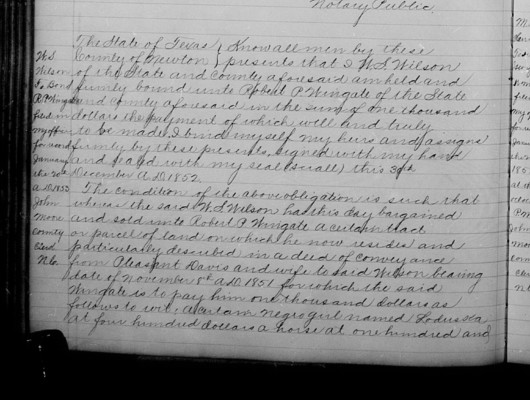 Notary Public,
The State of Texas } Know all men by these
County of Newton } presents that I W.S. Wilson
of the State and County aforesaid am held and
firmly bound unto Robert P. Wingate of the State
and County aforesaid in the sum of one thousand
dollars the payment of which will and truly
to be made I bind myself my heirs and assigns
firmly by these presents, signed with my hand
and seal with my seal (scrall) this 30th
December A.D. 1852.
The condition of the above obligation is such that
whereas the said W.S. Wilson has this day bargained
and sold unto Robert P. Wingate a certain tract
or parcel of land on which he now resides and
particularly described in a deed of conveyance
from Pleasant Davis and wife to said Wilson bearing
date of November 1st A.D. 1851 for which the said
Wingate is to pay him one thousand dollars as
follows to wit, a certain negro girl named
at four hundred dollars a horse at one hundred and
W.S.
Wilson
To Bond
R.P. Wingate
filed in
my office
for record
January
the 20th
A.D. 1853
John
Moore
County
Clerk
N.Co.